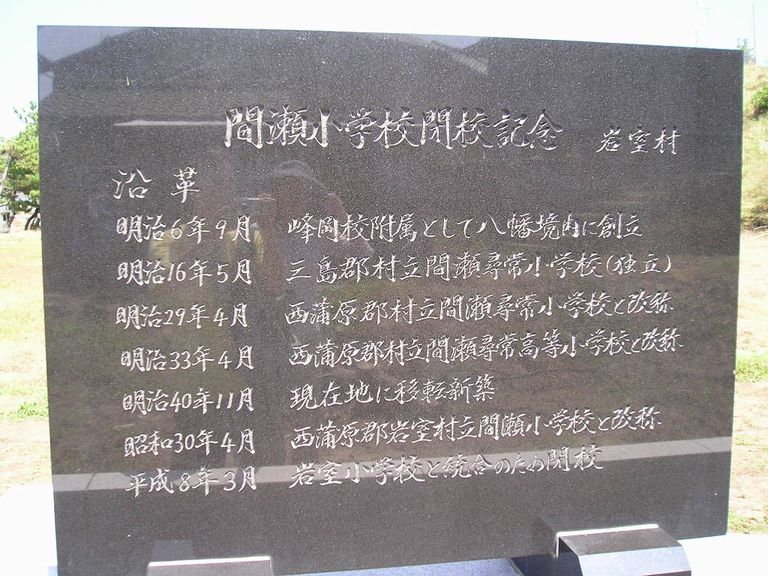 間瀬小学校閉校記念 岩室村
沿革
明治6年9月 峰岡校附属として八幡境内に創立
明治16年5月 三島郡村立間瀬尋常小学校(独立)
明治29年4月 西蒲原郡村立間瀬尋常小学校と改称
明治33年4月 西蒲原郡村立間瀬尋常高等小学校と改称
明治40年11月 現在地に移転新築
昭和30年4月 西蒲原郡岩室村立間瀬小学校と改称
平成8年3月 岩室小学校と統合のため閉校